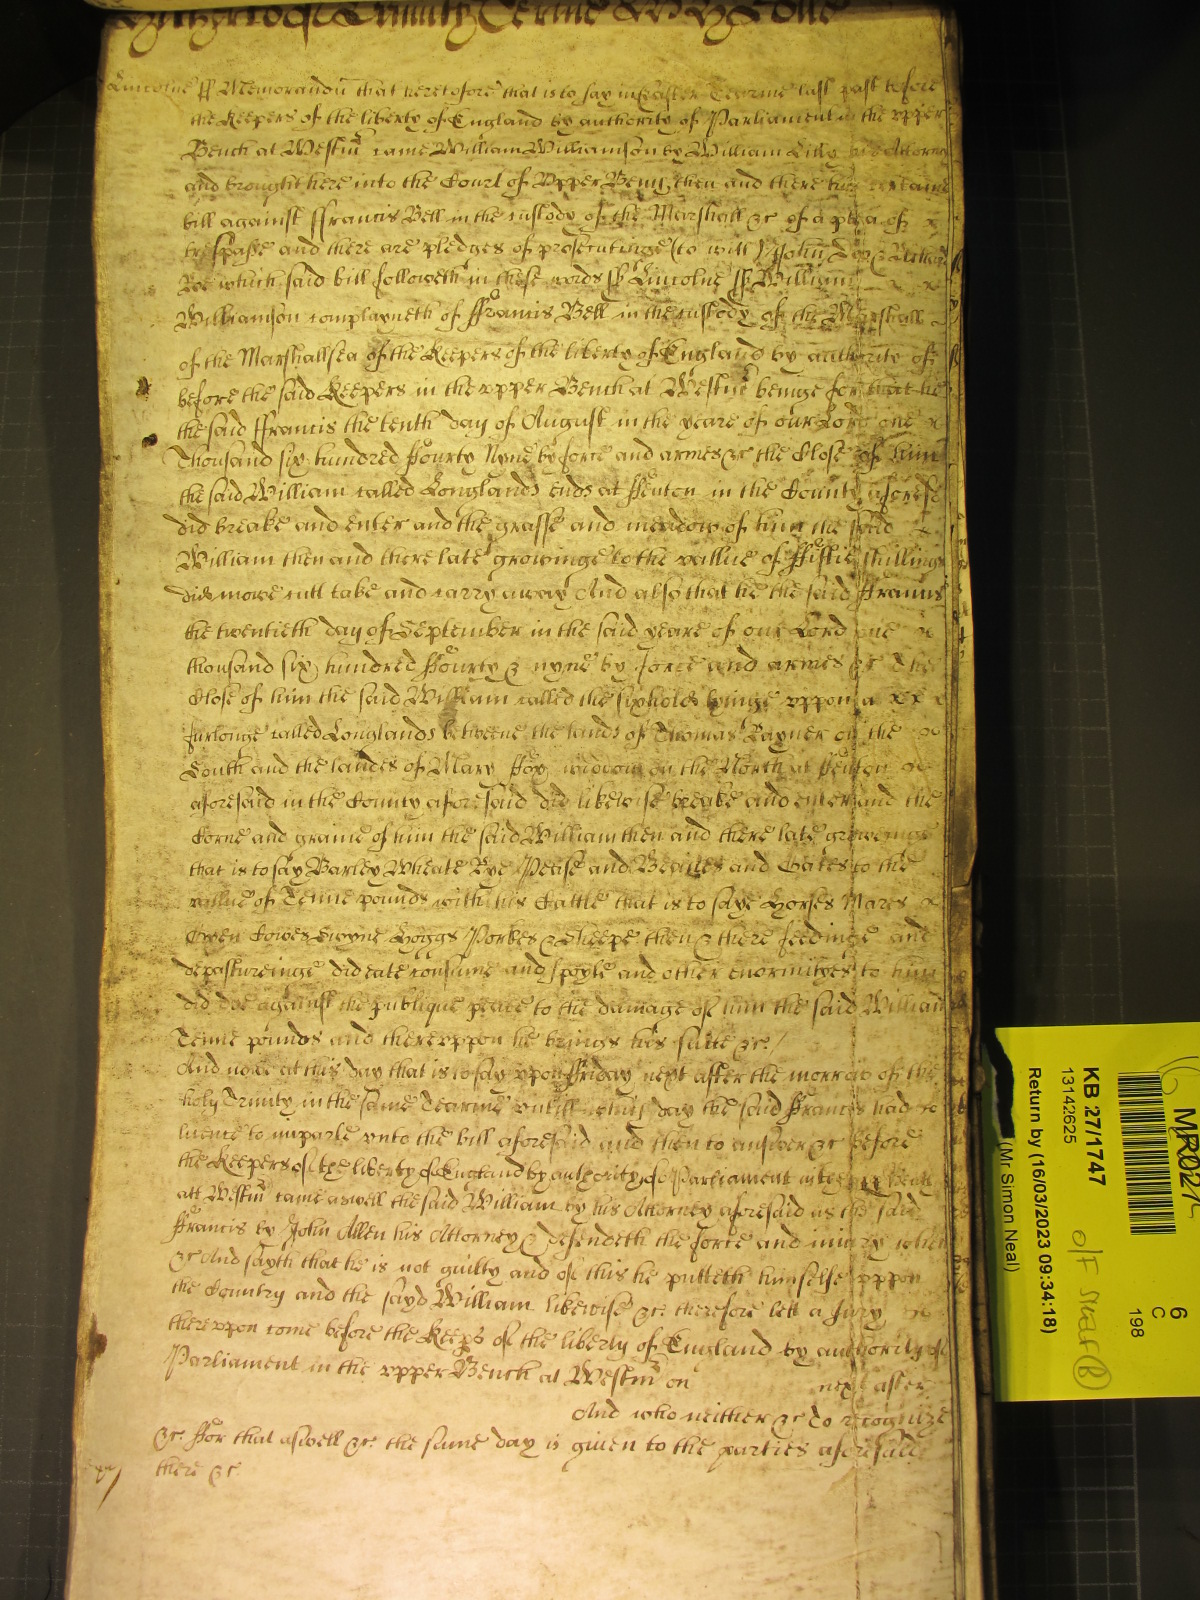 Trinity Terme
Lincolne ss Memorandu that heretofore that is to say in Easter Tearme last past before
the Keepers of the liberty of England by authority of Parliament in the upper
Bench at Westm came William Williamson by William Lilly his Attorney
and brought here into the Court of Upper Bench then and there his certaine
bill against ffrancis Bell in the custody of the Marshall &c of a plea of x
trespasse and there are pledges of prosecutinge (to witt) John Doe & Richard
Roe which said bill followeth in these words ss Lincolne ss William
Williamson complayneth of ffrancis Bell in the custody of the Marshall
of the Marshallsea of the Keepers of the liberty of England by authority of
before the said Keepers in the upper Bench at Westm beinge for that he
the said ffrancis the tenth day of August in the yeare of our Lord one x
Thousand six hundred ffourty Nyne by force and armes &c the Close of him
the said William called Longlands ends at ffenton in the County aforesd
did breake and enter and the grasse and meadow of him the said x
William then and there late growinge to the vallue of ffiftie shillings
did mowe cutt take and carry away And also that he the said ffrancis
the twentieth day of September in the said yeare of our Lord one x
thousand six hundred ffourty & nyne by force and armes &c The
Close of him the said William called the lyinge uppon a xx x
furlonge called Longlands betweene the lands of Thomas Rayner on the x
South and the landes of Mary ffox widdow on the North at ffenton x
aforesaid in the County aforesaid did likewise breake and enter and the
Corne and graine of him the said William then and there late groweinge
that is to say Barley Wheate Rye Pease and Beanes and Oates to the
vallue of Tenne pounds with his Cattle that is to saye Horses Mares x
Oxen Cowes Swyne Hoggs Porkes & Sheepe then & there feedinge and
depastureinge did eate consume and spoyle and other enormityes to him
did doe against the publique peace to the damage of him the said William
Tenne pounds and thereuppon he brings his suite &c /
And nowe at this day that is to say upon ffriday next after the morrow of the
holy Trinity in the same Tearme untill which day the said ffrancis had x
licence to imparle unto the bill aforesaid and then to answer &c before
the Keepers of the liberty of England by authority of Parliament in the upper Bench
att Westm came aswell the said William by his Attorney aforesaid as the said
ffrancis by John Allen his Attorney & defendeth the force and iniury when
&c And sayth that he is not guilty and of this he putteth himselfe uppon
the Country and the sayd William likewise &c therefore lett a Jury x
thereuppon come before the Keeps of the liberty of England by authority of
Parliament in the upper Bench at Westm on next after
And who neither &c to recognize
&c ffor that aswell &c the same day is given to the parties aforesaid
there &c
KB 27/1747
13142625
Return by (16/03/2023 09:34:18)
(Mr Simon Neal)
6
C
198